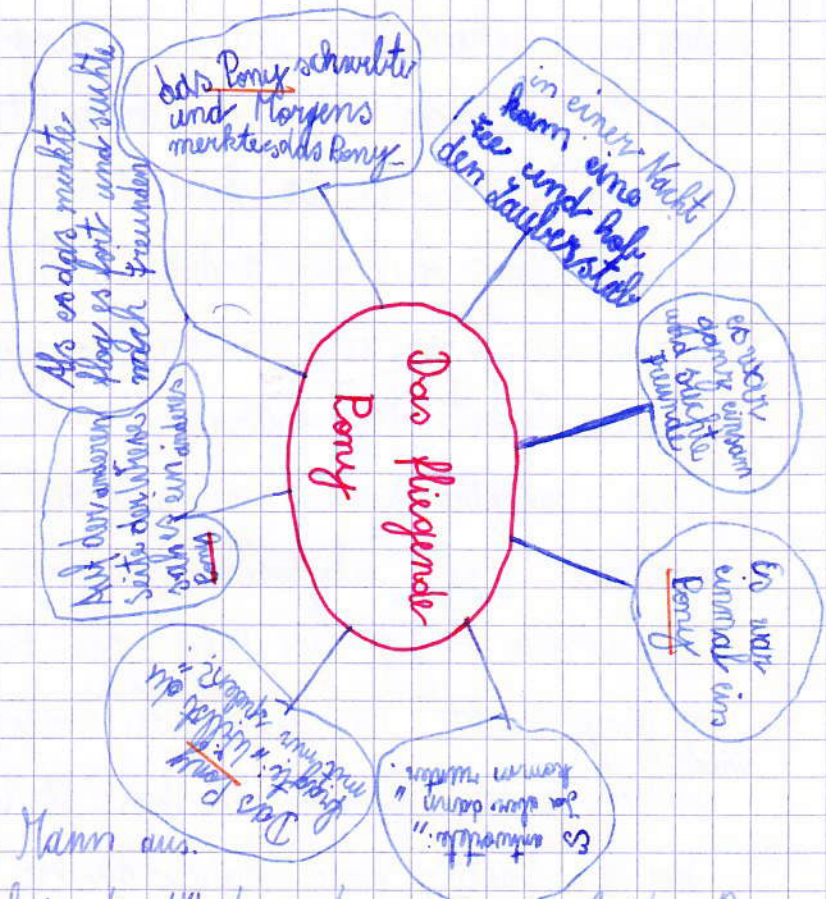 Das fliegende
Pony
Es war
einmal ein
Pony
es war
ganz einsam
und suchte
freunde
in einer Nacht
kam eine
Fee und hob
den Zauberstab
das Pony schwebte
und Morgens
merkte es das Pony
Als es das merkte
flog es fort und suchte
nach Freunden
Auf der anderen
Seite der Wiese
sah es ein anderes
Pony
Das Pony
fragte: „Willst du
mit mir spielen?"
Es
antwortete: „
Ja aber dann "
komm runter.
Mann aus.